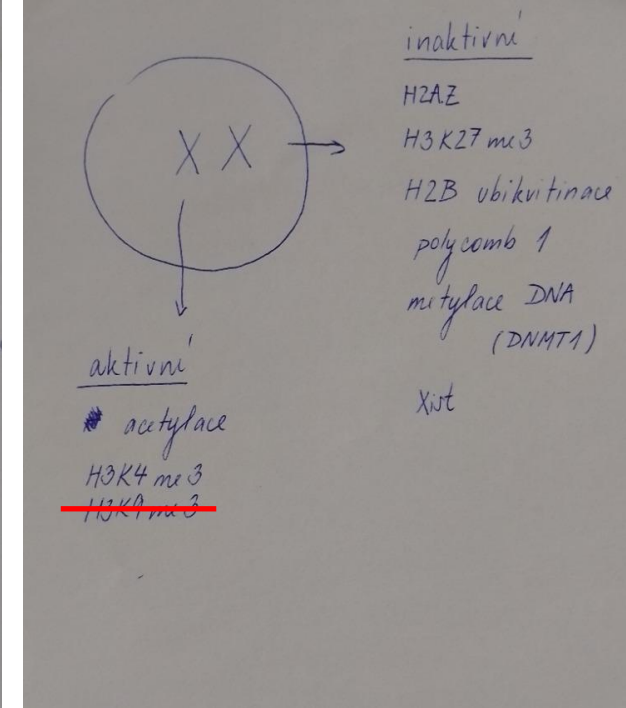 inaktivní
H2AZ
H3K27me3
H2B ubikvitinace
polycomb 1
metylace DNA
(DNMT1)
Xist
X X
aktivní
acetylace
H3K4me3
H3K9me3